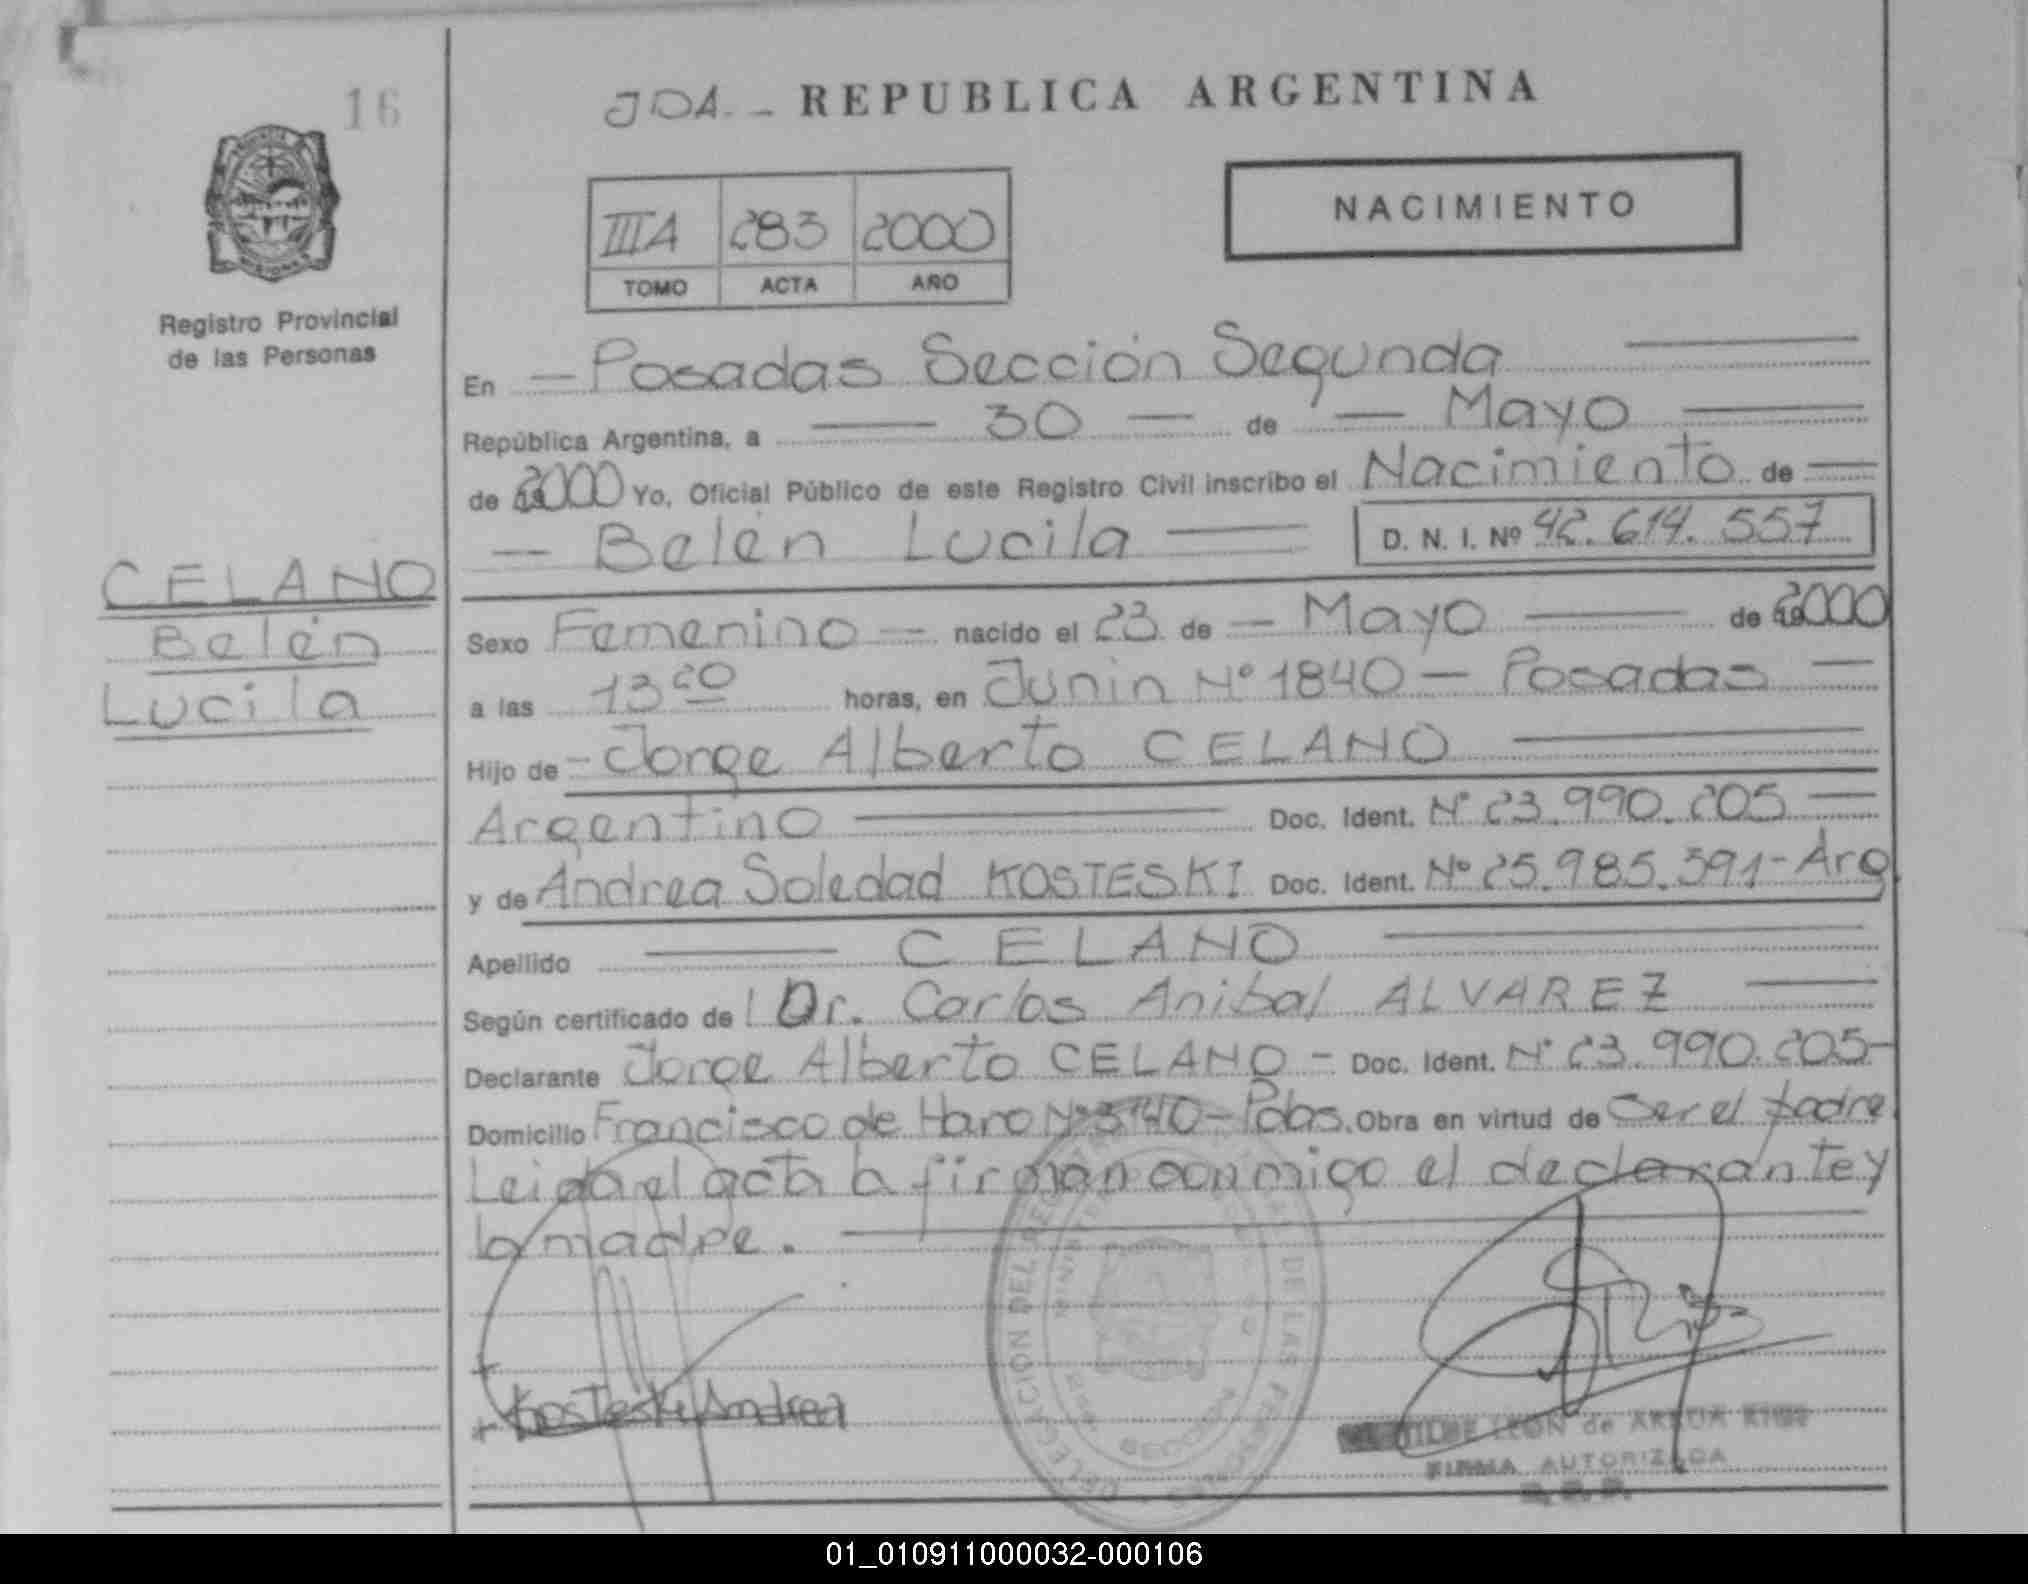 16
JDA.- REPUBLICA ARGENTINA
IIIA 283 2000
TOMO ACTA AÑO
NACIMIENTO
Registro Provincial
de las Personas
En — Posadas Sección Segunda
República Argentina, a — 30 — de — Mayo
de 2000 Yo, Oficial Público de este Registro Civil inscribo el Nacimiento de —
— Belén Lucila — D. N. I. Nº 42.614.557
CELANO
Belén
Lucila
Sexo Femenino — nacido el 23 de — Mayo — de 2000
a las 13 20 horas, en Junin Nº 1840 — Posadas —
Hijo de — Jorge Alberto CELANO
Argentino — Doc. Ident. Nº 23.990.205 —
y de Andrea Soledad KOSTESKI Doc. Ident. Nº 25.985.391-Arg
Apellido — CELANO —
Según certificado de l Dr. Carlos Anibal ALVAREZ —
Declarante Jorge Alberto CELANO - Doc. Ident. Nº 23.990.205-
Domicilio Francisco de Haro Nº 3140-Pdas. Obra en virtud de Ser el padre
Leida el acta la firman conmigo el declarante y
la madre. —
Kosteski Andrea
DELEGACION DEL DE LAS PERSONAS
LEON de
FIRMA AUTORIZADA
01_010911000032-000106